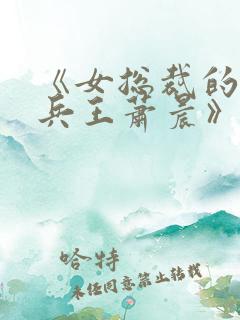 《女总裁的
兵王萧晨》
哈特
未经同意禁止转载